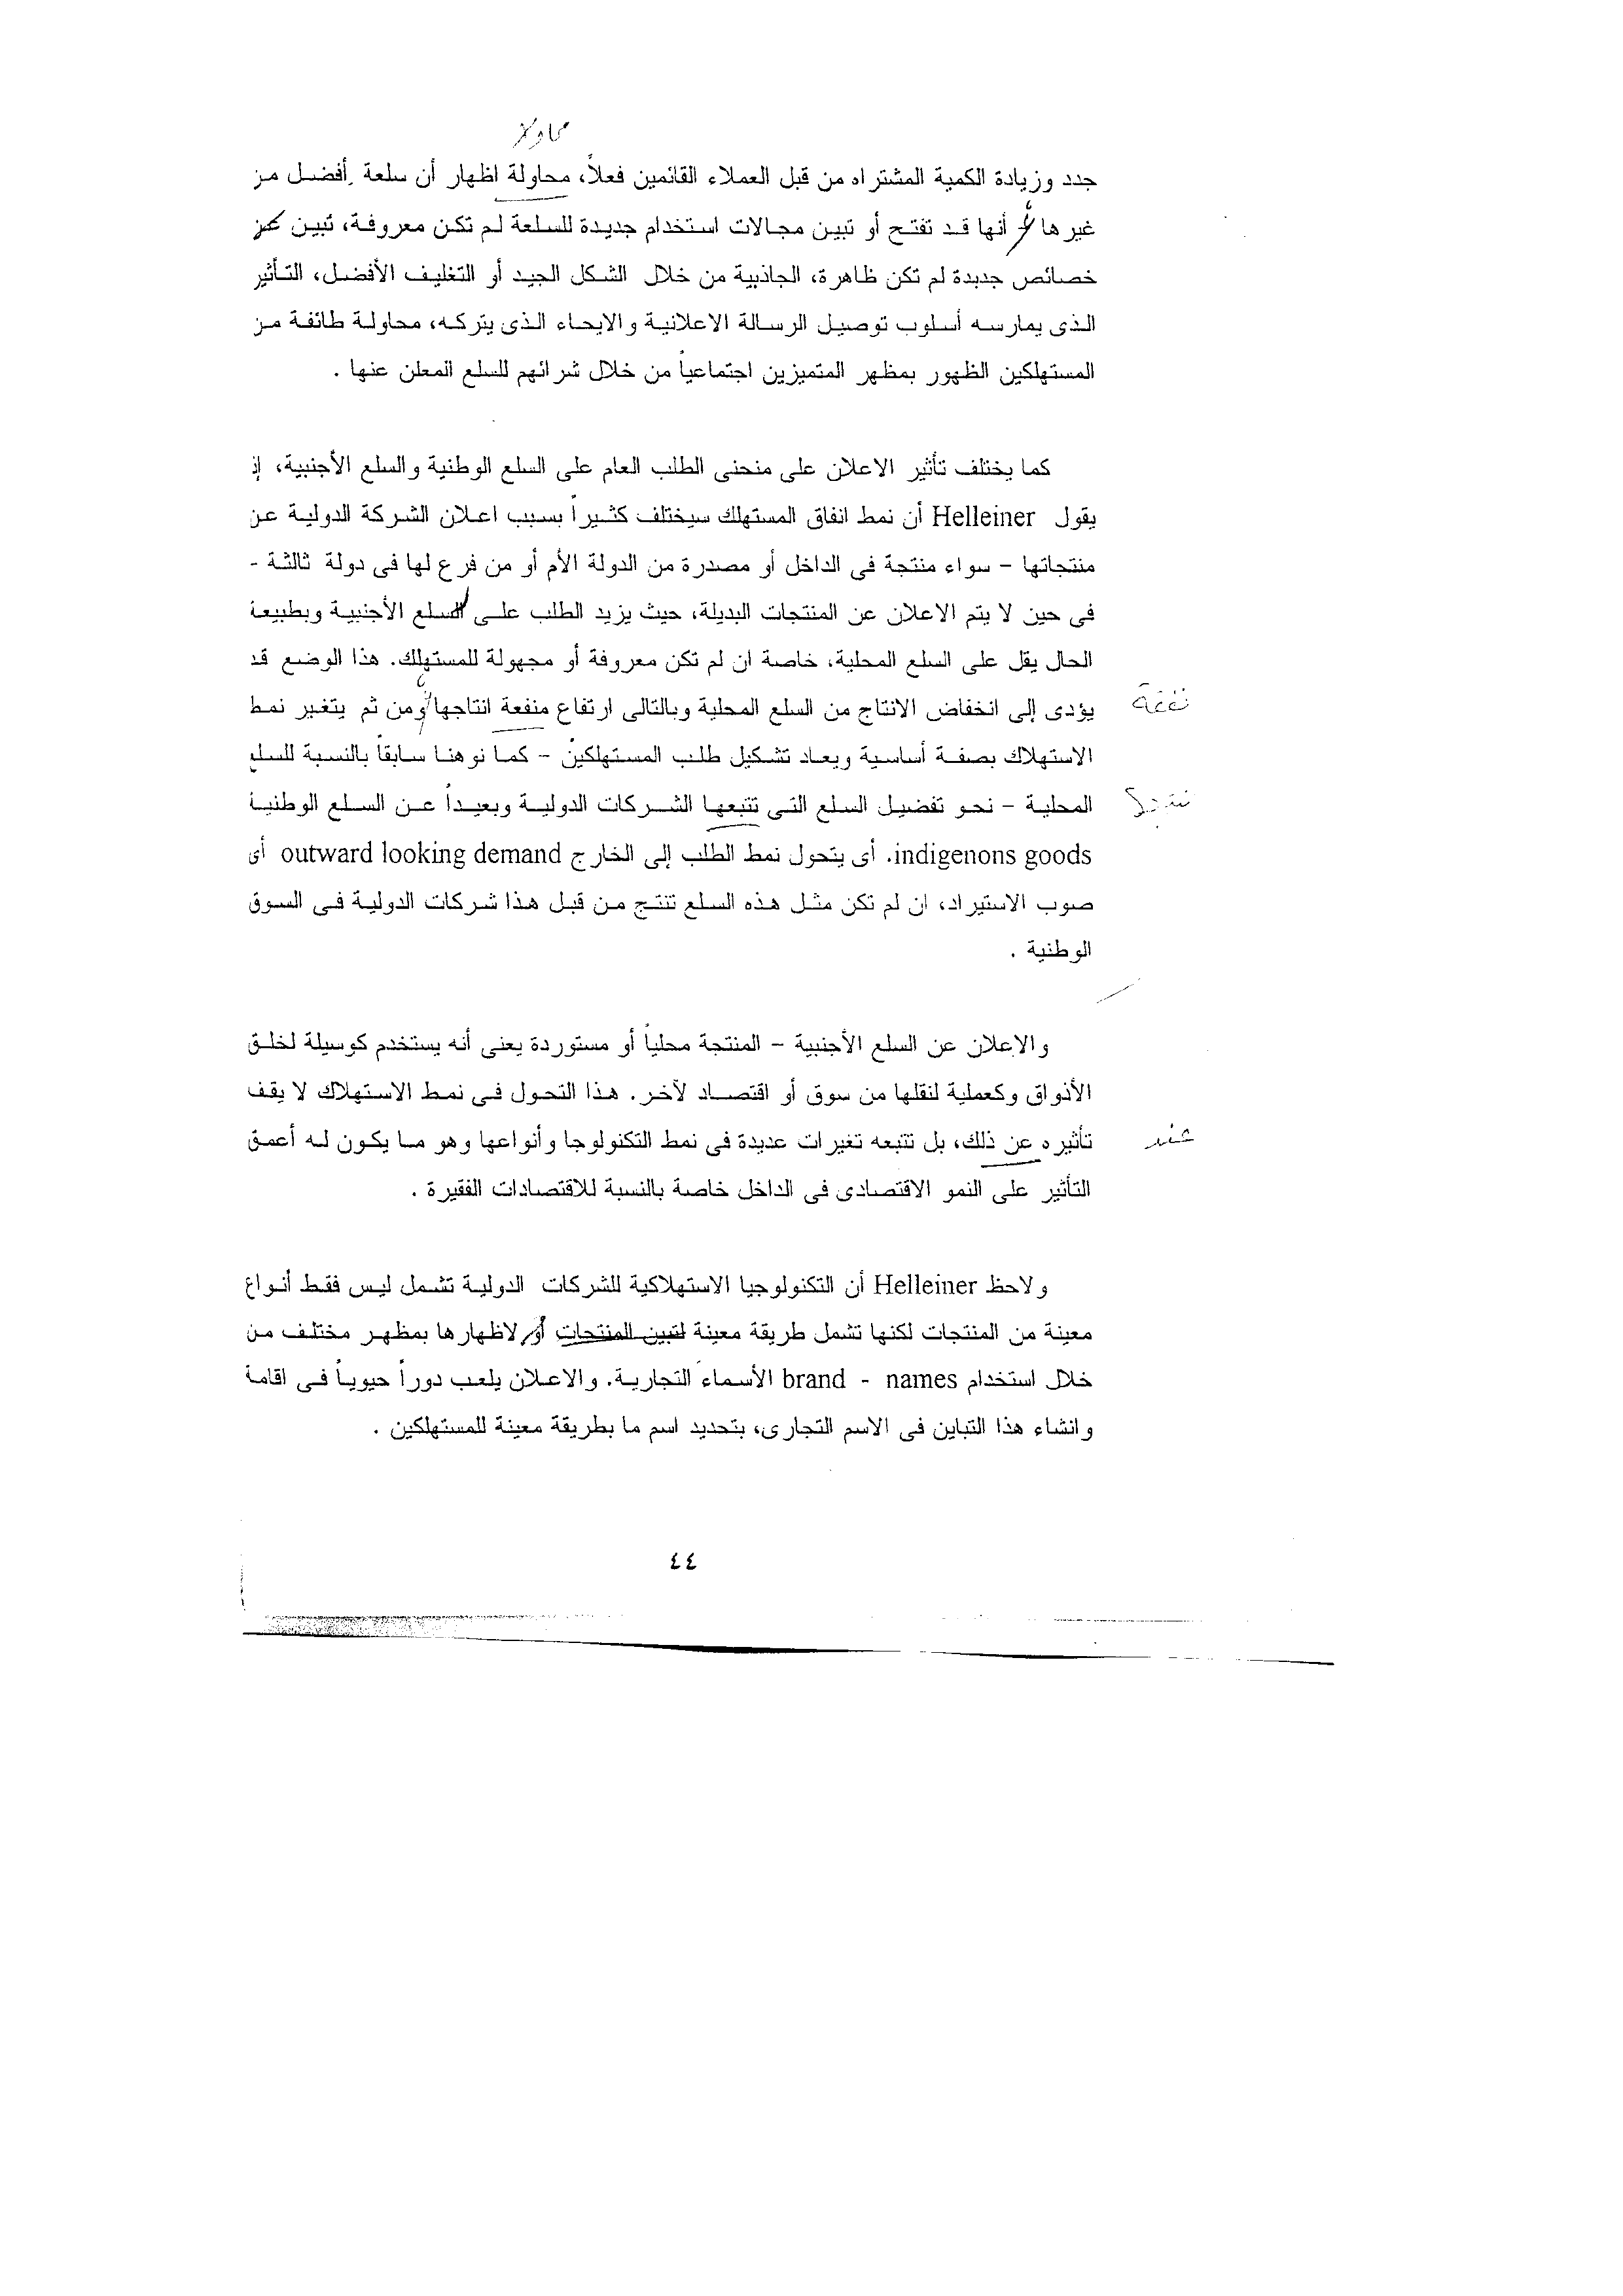 محاولة
جدد وزيادة الكمية المشتراه من قبل العملاء القائمين فعلاً، محاولة اظهار أن سلعة أفضل من
غيرها أو أنها قد تفتح أو تبين مجالات استخدام جديدة للسلعة لم تكن معروفة، تبين عن
خصائص جديدة لم تكن ظاهرة، الجاذبية من خلال الشكل الجيد أو التغليف الأفضل، التأثير
الذى يمارسه أسلوب توصيل الرسالة الاعلانية والايحاء الذى يتركه، محاولة طائفة من
المستهلكين الظهور بمظهر المتميزين اجتماعياً من خلال شرائهم للسلع المعلن عنها .
كما يختلف تأثير الاعلان على منحنى الطلب العام على السلع الوطنية والسلع الأجنبية، إذ
يقول Helleiner أن نمط انفاق المستهلك سيختلف كثيراً بسبب اعلان الشركة الدولية عن
منتجاتها – سواء منتجة فى الداخل أو مصدرة من الدولة الأم أو من فرع لها فى دولة ثالثة -
فى حين لا يتم الاعلان عن المنتجات البديلة، حيث يزيد الطلب على السلع الأجنبية وبطبيعة
الحال يقل على السلع المحلية، خاصة ان لم تكن معروفة أو مجهولة للمستهلك. هذا الوضع قد
يؤدى إلى انخفاض الانتاج من السلع المحلية وبالتالى ارتفاع منفعة انتاجها ومن ثم يتغير نمط
نفقة
الاستهلاك بصفة أساسية ويعاد تشكيل طلب المستهلكين – كما نوهنا سابقاً بالنسبة للسلع
المحلية – نحو تفضيل السلع التى تتبعها الشركات الدولية وبعيداً عن السلع الوطنية
indigenons goods. أى يتحول نمط الطلب إلى الخارج outward looking demand أى
صوب الاستيراد، ان لم تكن مثل هذه السلع تنتج من قبل هذا شركات الدولية فى السوق
الوطنية .
والاعلان عن السلع الأجنبية – المنتجة محلياً أو مستوردة يعنى أنه يستخدم كوسيلة لخلق
الأذواق وكعملية لنقلها من سوق أو اقتصاد لآخر. هذا التحول فى نمط الاستهلاك لا يقف
تأثيره عن ذلك، بل تتبعه تغيرات عديدة فى نمط التكنولوجا وأنواعها وهو ما يكون له أعمق
عند
التأثير على النمو الاقتصادى فى الداخل خاصة بالنسبة للاقتصادات الفقيرة .
ولاحظ Helleiner أن التكنولوجيا الاستهلاكية للشركات الدولية تشمل ليس فقط أنواع
معينة من المنتجات لكنها تشمل طريقة معينة لتبين المنتجات أو لاظهارها بمظهر مختلف من
خلال استخدام brand - names الأسماء التجارية. والاعلان يلعب دوراً حيوياً فى اقامة
وانشاء هذا التباين فى الاسم التجارى، بتحديد اسم ما بطريقة معينة للمستهلكين .
٤٤